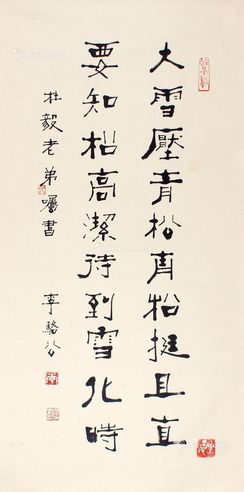 大雪壓青松青松挺且直
要知松高潔待到雪化時
杜毅老弟囑書
李駱公